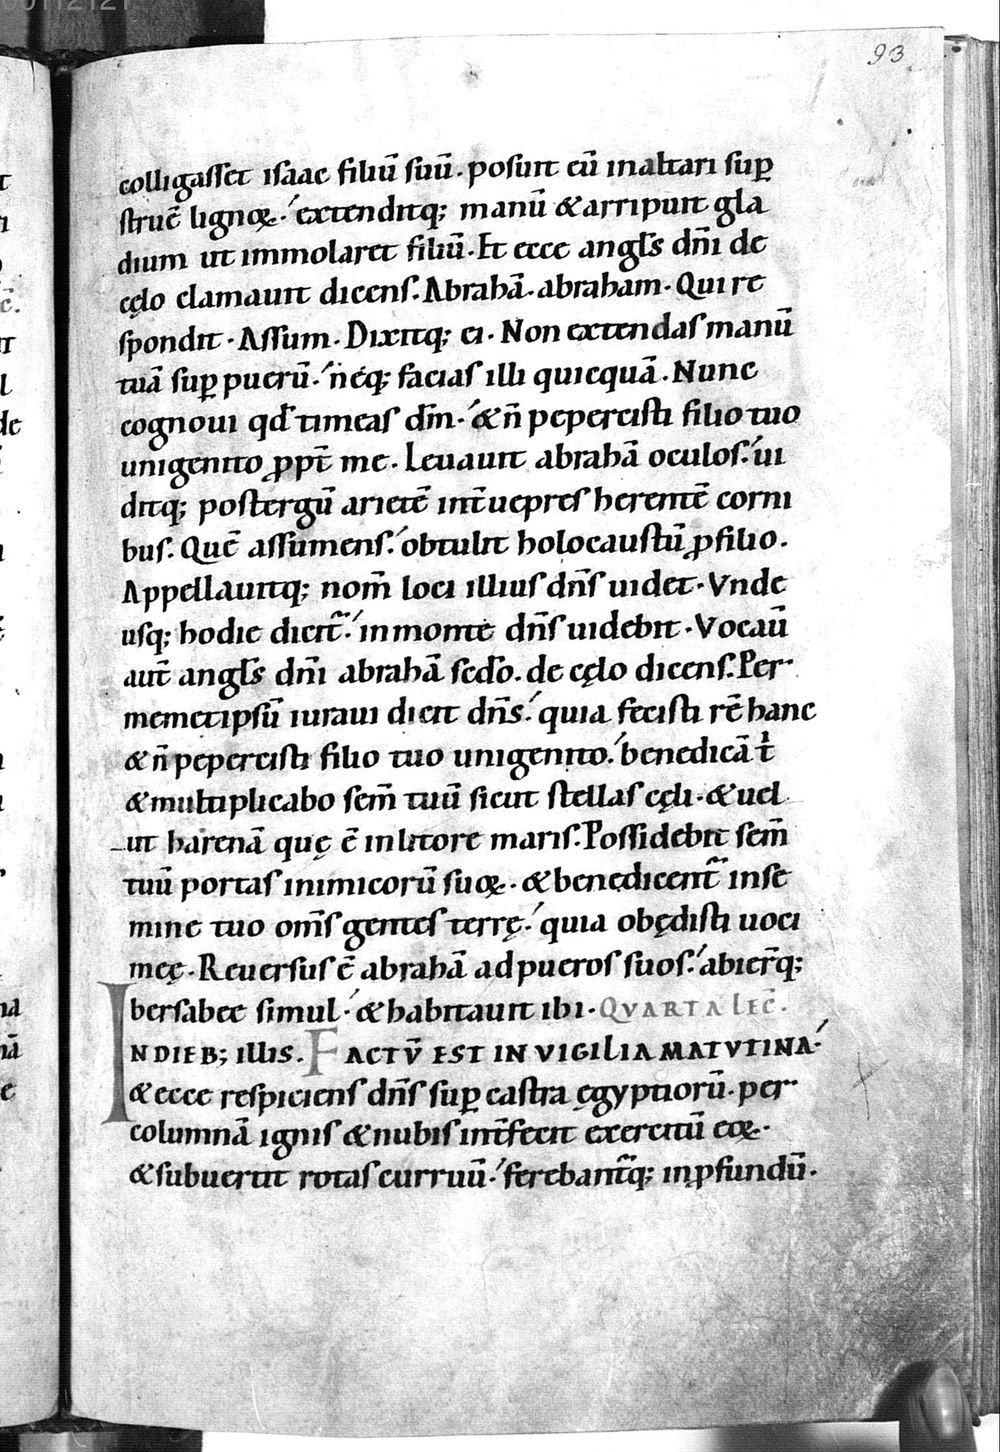 93
colligasset isaac filiū suū. posuit eū in altari suꝑ
struē lignoꝝ. extenditq; manū & arripuit gla
dium ut immolaret filiū. Et ecce angl̄s dn̄i de
cęlo clamauit dicens. Abrahā. abraham. Qui re
spondit. Assum. Dixitq; ei. Non extendas manū
tuā suꝑ puerū. neq; facias illi quicquā. Nunc
cognoui qd̄ timeas dm̄. & n̄ pepercisti filio tuo
unigenito ꝓpt̄ me. Leuauit abrahā oculos. ui
ditq; postergū arietē int̄ uepres herentē corni
bus. Quē assumens. obtulit holocaustū ꝓ filio.
Appellauitq; nom̄ loci illius dn̄s uidet. Vnde
usq; hodie dicit̄. in monte dn̄s uidebit. Vocau̅
aut̄ angl̄s dn̄i abrahā sc̄do. de cęlo dicens. Per
memetipsū iuraui dicit dn̄s. quia fecisti rē hanc
& n̄ pepercisti filio tuo unigenito. benedicā t̄
& multiplicabo sem̄ tuū sicut stellas cęli. & uel
ut harenā quę ē in litore maris. Possidebit sem̄
tuū portas inimicorū suoꝝ. & benedicent̄ in se
mine tuo om̄s gentes terrę. quia obędisti uoci
meę. Reuersus ē abrahā ad pueros suos. abier̄q;
bersabee simul. & habitauit ibi. QVARTA LEC̄.
IN DIEB; ILLIS. FACTV̄ EST IN VIGILIA MATVTINA.
& ecce respiciens dn̄s suꝑ castra ęgyptiorū. per
columnā ignis & nubis int̄fecit exercitū eoꝝ.
& subuertit rotas curruū. ferebant̄q; in ꝓfundū.